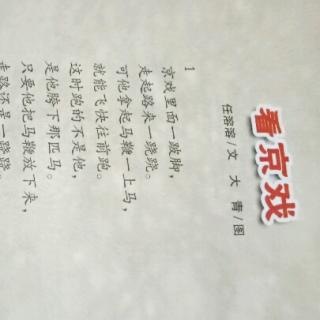 看京戏
任溶溶/文 大青/图
1
京戏里面一跛脚，
走起路来一跷跷。
可他拿起马鞭一上马，
就能飞快往前跑。
这时跑的不是他，
是他胯下那匹马。
只要他把马鞭放下来，
走路还是一跷跷。